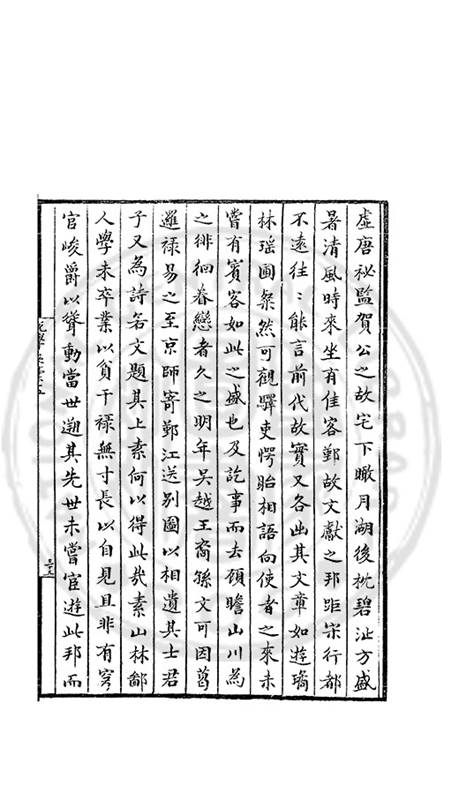 虛唐祕監賀公之故宅下瞰月湖後枕碧沚方盛
暑清風時來坐有佳客鄞故文獻之邦距宋行都
不遠往〻能言前代故實又各出其文章如遊瓊
林瑶圃粲然可觀驛吏愕眙相語向使者之來未
嘗有賓客如此之盛也及訖事而去顧瞻山川為
之徘徊眷戀者久之明年吳越王裔孫文可因葛
邏祿易之至京師寄鄞江送别圖以相遺其士君
子又為詩若文題其上素何以得此㢤素山林鄙
人學未卒業以貧干祿無寸長以自見且非有穹
官峻爵以聳動當世遡其先世未嘗宦遊此邦而